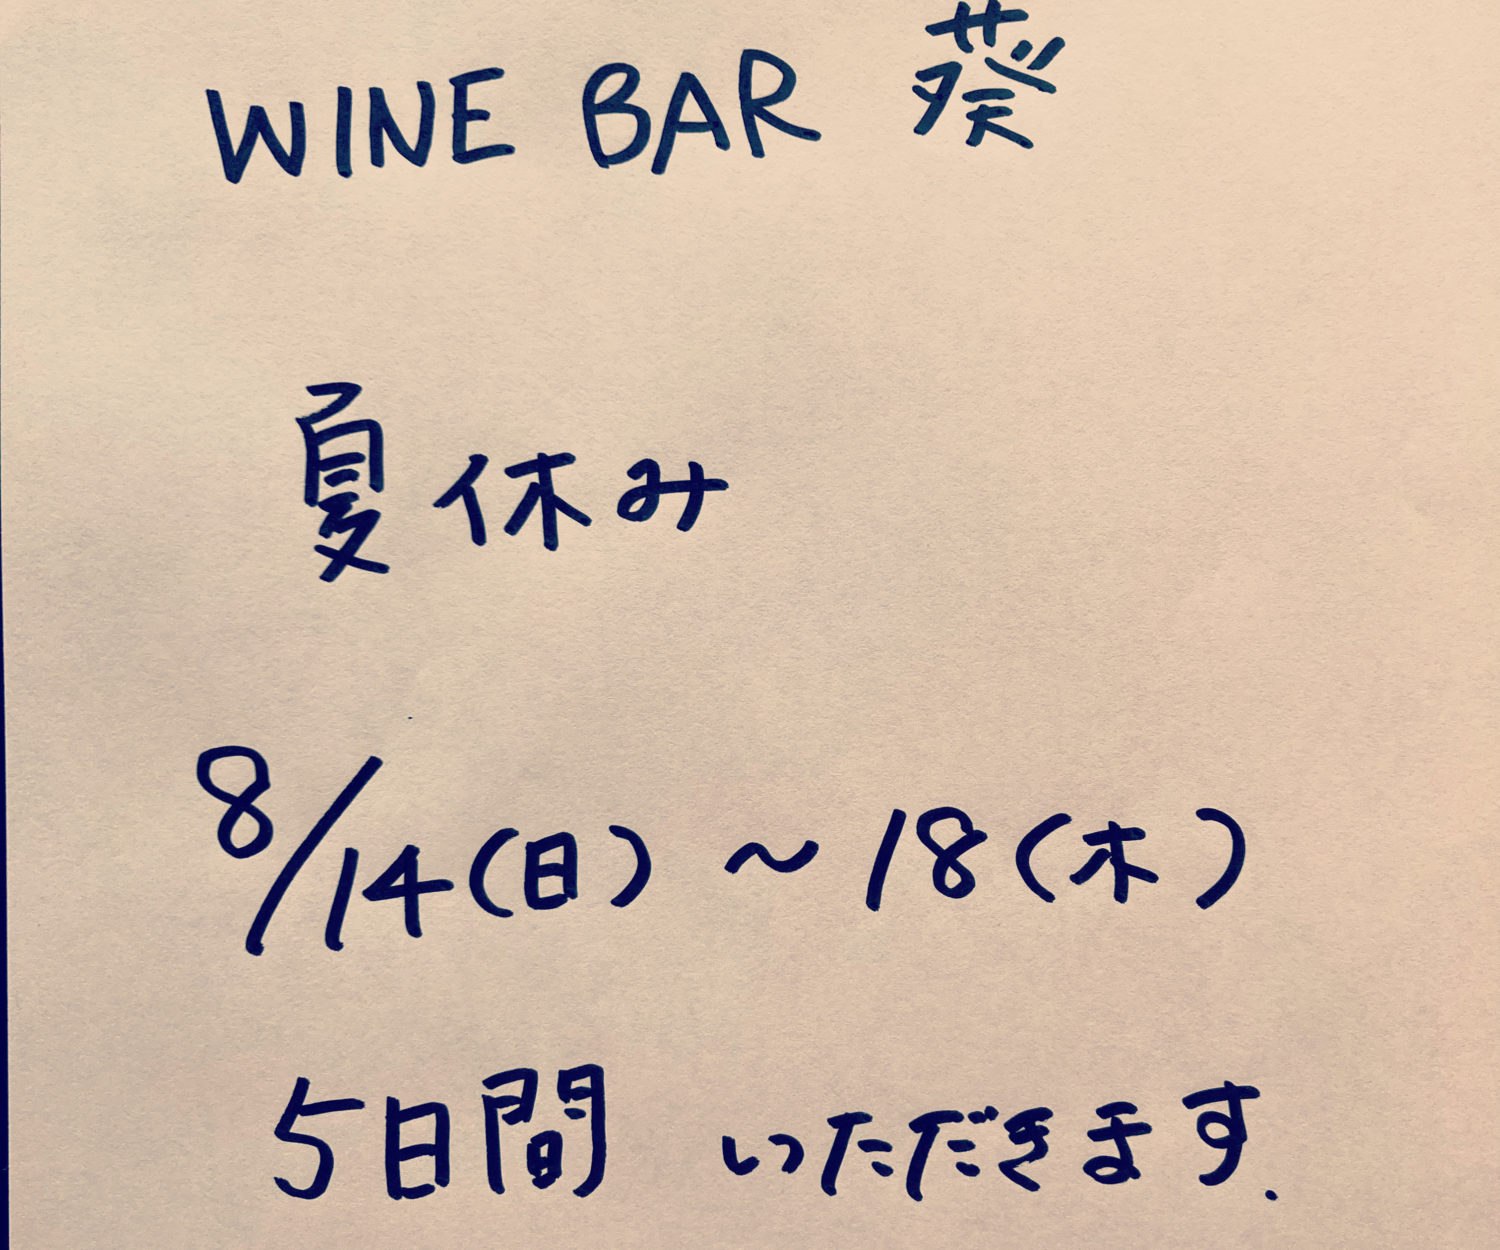 WINE BAR 葵
夏休み
8/14(日)~18(木)
5日間 いただきます.